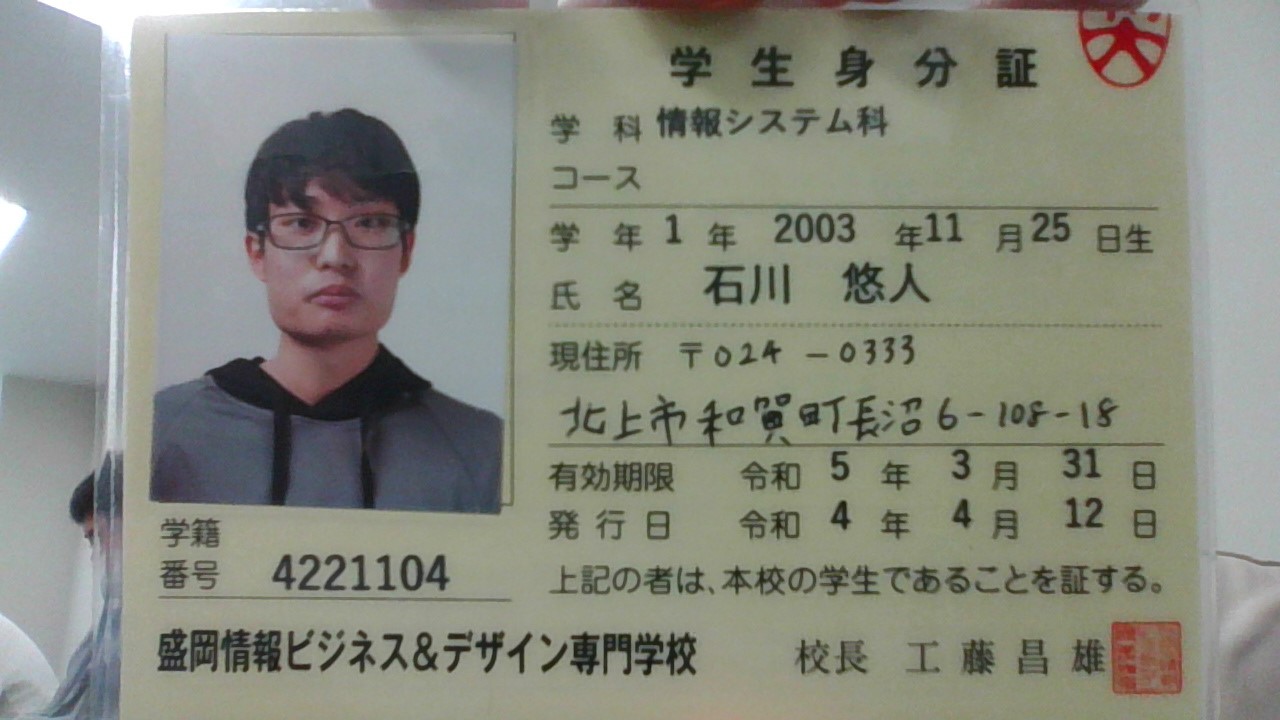 学生身分証
学科 情報システム科
コース
学年 1 年 2003 年 11 月 25 日生
氏名 石川 悠人
現住所 〒024-0333
北上市和賀町長沼6-108-18
有効期限 令和 5 年 3 月 31 日
発行日 令和 4 年 4 月 12 日
学籍
番号 4221104
上記の者は、本校の学生であることを証する。
盛岡情報ビジネス&デザイン専門学校 校長 工藤昌雄